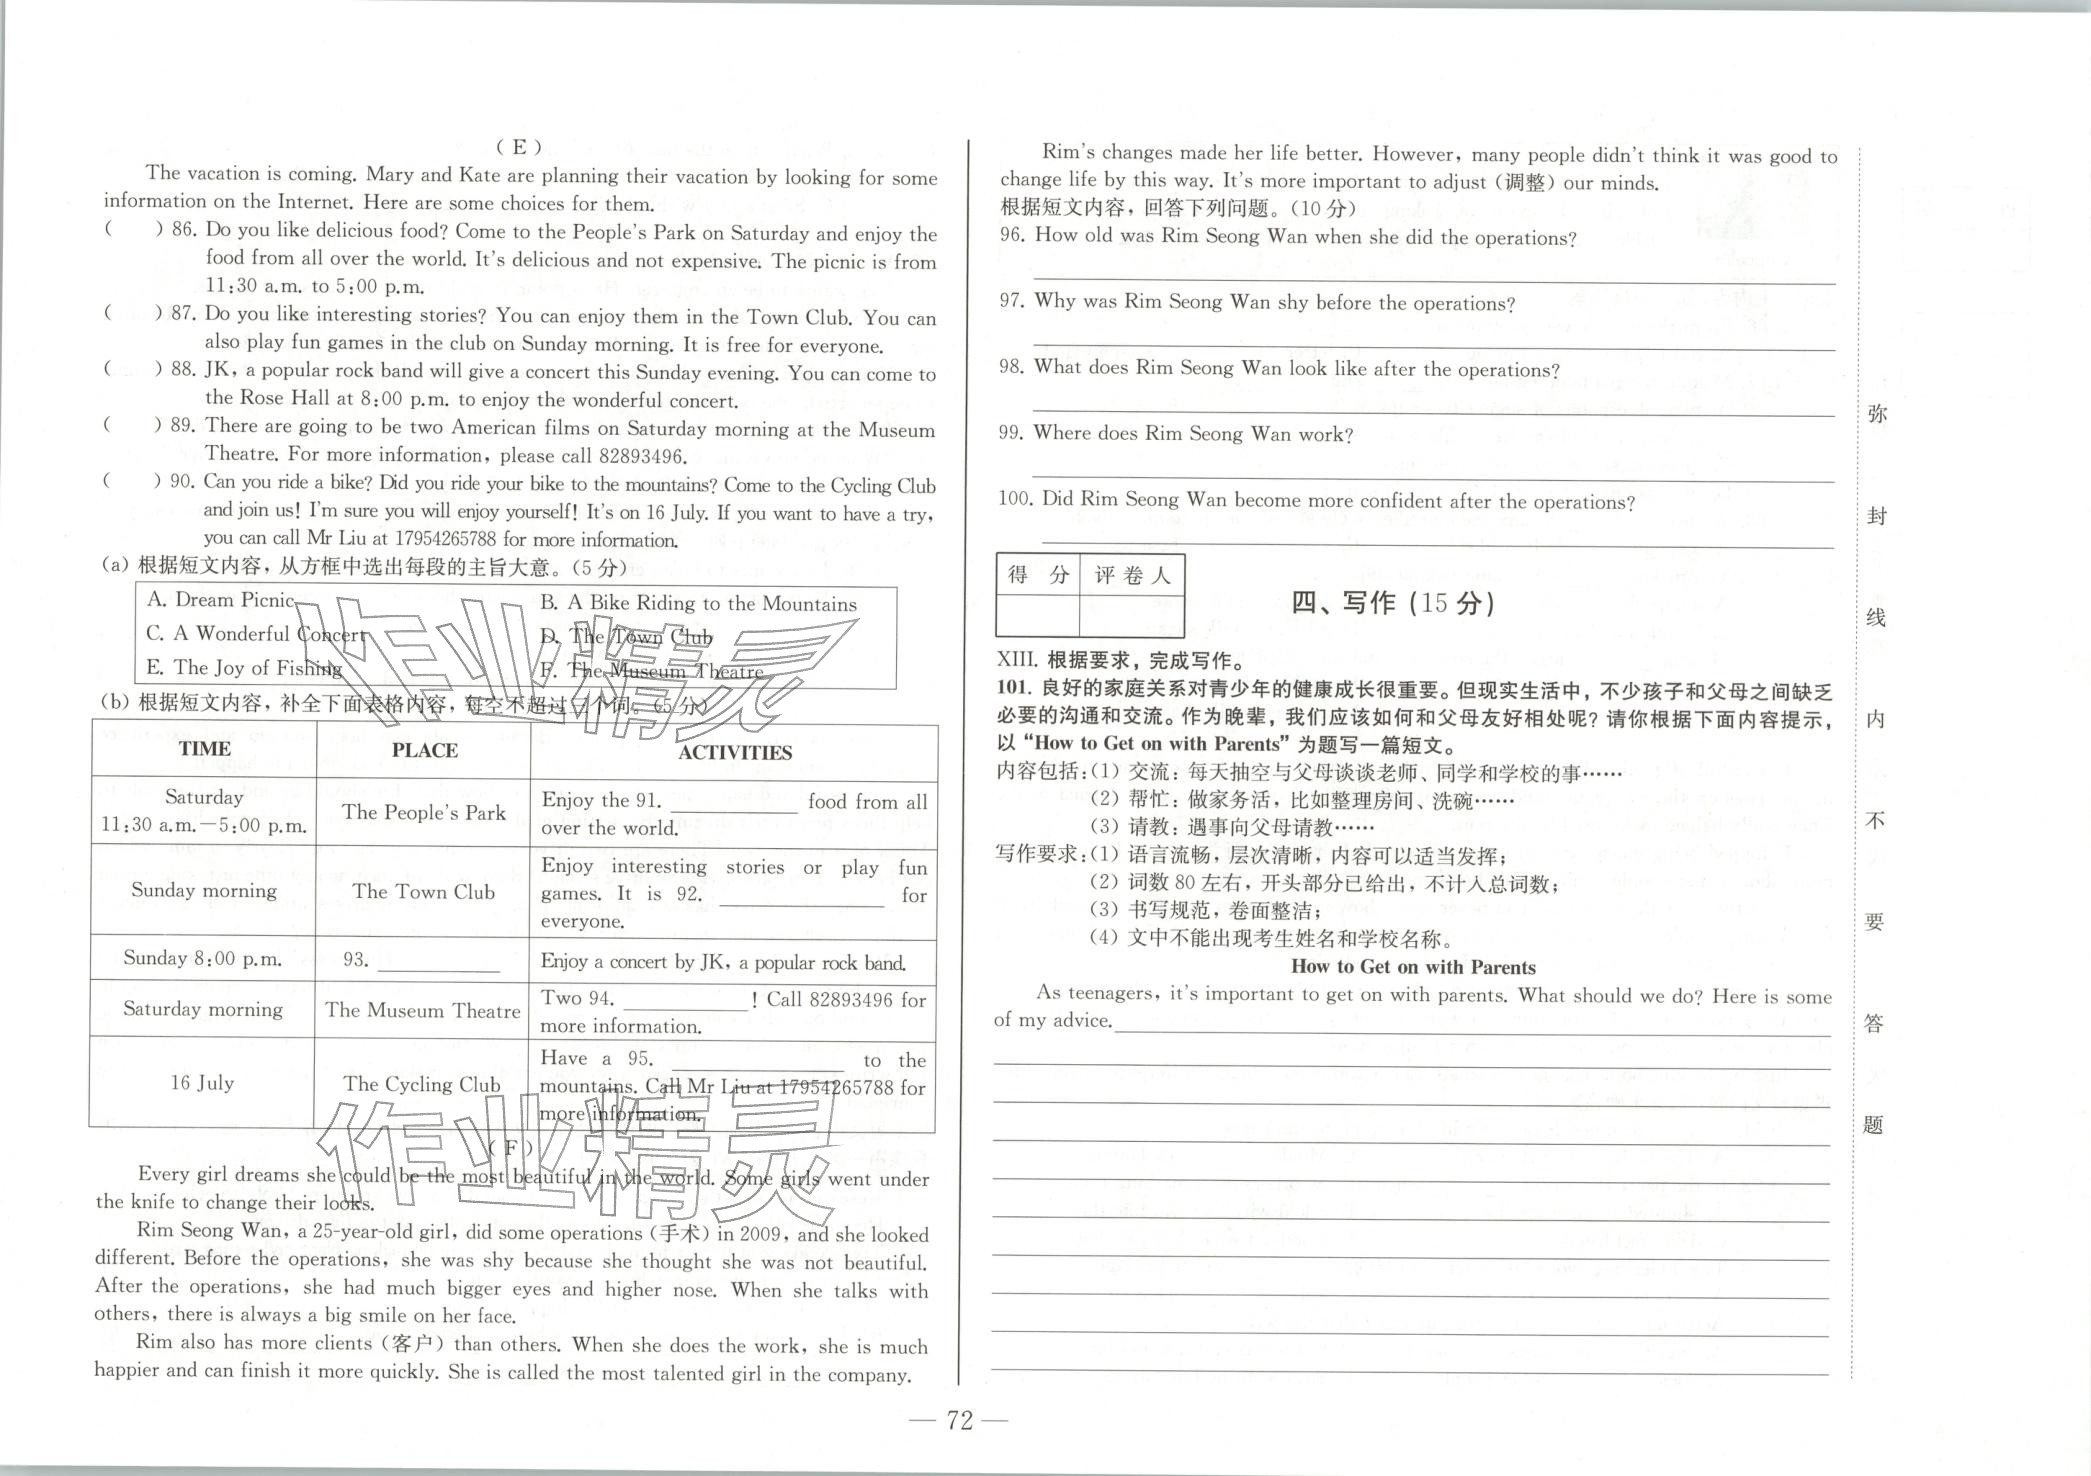 ( E )
The vacation is coming. Mary and Kate are planning their vacation by looking for some
information on the Internet. Here are some choices for them.
(　　) 86. Do you like delicious food? Come to the People's Park on Saturday and enjoy the
food from all over the world. It's delicious and not expensive. The picnic is from
11:30 a.m. to 5:00 p.m.
(　　) 87. Do you like interesting stories? You can enjoy them in the Town Club. You can
also play fun games in the club on Sunday morning. It is free for everyone.
(　　) 88. JK, a popular rock band will give a concert this Sunday evening. You can come to
the Rose Hall at 8:00 p.m. to enjoy the wonderful concert.
(　　) 89. There are going to be two American films on Saturday morning at the Museum
Theatre. For more information, please call 82893496.
(　　) 90. Can you ride a bike? Did you ride your bike to the mountains? Come to the Cycling Club
and join us! I'm sure you will enjoy yourself! It's on 16 July. If you want to have a try,
you can call Mr Liu at 17954265788 for more information.
(a) 根据短文内容，从方框中选出每段的主旨大意。(5 分)
A. Dream Picnic B. A Bike Riding to the Mountains
C. A Wonderful Concert D. The Town Club
E. The Joy of Fishing F. The Museum Theatre
(b) 根据短文内容，补全下面表格内容，每空不超过三个词。(5 分)
TIME PLACE ACTIVITIES
Saturday
11:30 a.m.—5:00 p.m. The People's Park Enjoy the 91. ____________ food from all
over the world.
Sunday morning The Town Club Enjoy interesting stories or play fun
games. It is 92. ____________ for
everyone.
Sunday 8:00 p.m. 93. ____________ Enjoy a concert by JK, a popular rock band.
Saturday morning The Museum Theatre Two 94. ____________! Call 82893496 for
more information.
16 July The Cycling Club Have a 95. ____________ to the
mountains. Call Mr Liu at 17954265788 for
more information.
( F )
Every girl dreams she could be the most beautiful in the world. Some girls went under
the knife to change their looks.
Rim Seong Wan, a 25-year-old girl, did some operations (手术) in 2009, and she looked
different. Before the operations, she was shy because she thought she was not beautiful.
After the operations, she had much bigger eyes and higher nose. When she talks with
others, there is always a big smile on her face.
Rim also has more clients (客户) than others. When she does the work, she is much
happier and can finish it more quickly. She is called the most talented girl in the company.
Rim's changes made her life better. However, many people didn't think it was good to
change life by this way. It's more important to adjust (调整) our minds.
根据短文内容，回答下列问题。(10 分)
96. How old was Rim Seong Wan when she did the operations?
97. Why was Rim Seong Wan shy before the operations?
98. What does Rim Seong Wan look like after the operations?
99. Where does Rim Seong Wan work?
100. Did Rim Seong Wan become more confident after the operations?
得 分 评 卷 人
四、写作 (15 分)
XIII. 根据要求，完成写作。
101. 良好的家庭关系对青少年的健康成长很重要。但现实生活中，不少孩子和父母之间缺乏
必要的沟通和交流。作为晚辈，我们应该如何和父母友好相处呢？请你根据下面内容提示，
以 “How to Get on with Parents” 为题写一篇短文。
内容包括：(1) 交流：每天抽空与父母谈谈老师、同学和学校的事……
(2) 帮忙：做家务活，比如整理房间、洗碗……
(3) 请教：遇事向父母请教……
写作要求：(1) 语言流畅，层次清晰，内容可以适当发挥；
(2) 词数 80 左右，开头部分已给出，不计入总词数；
(3) 书写规范，卷面整洁；
(4) 文中不能出现考生姓名和学校名称。
How to Get on with Parents
As teenagers, it's important to get on with parents. What should we do? Here is some
of my advice.
弥
封
线
内
不
要
答
题
作业精灵
作业精灵
— 72 —